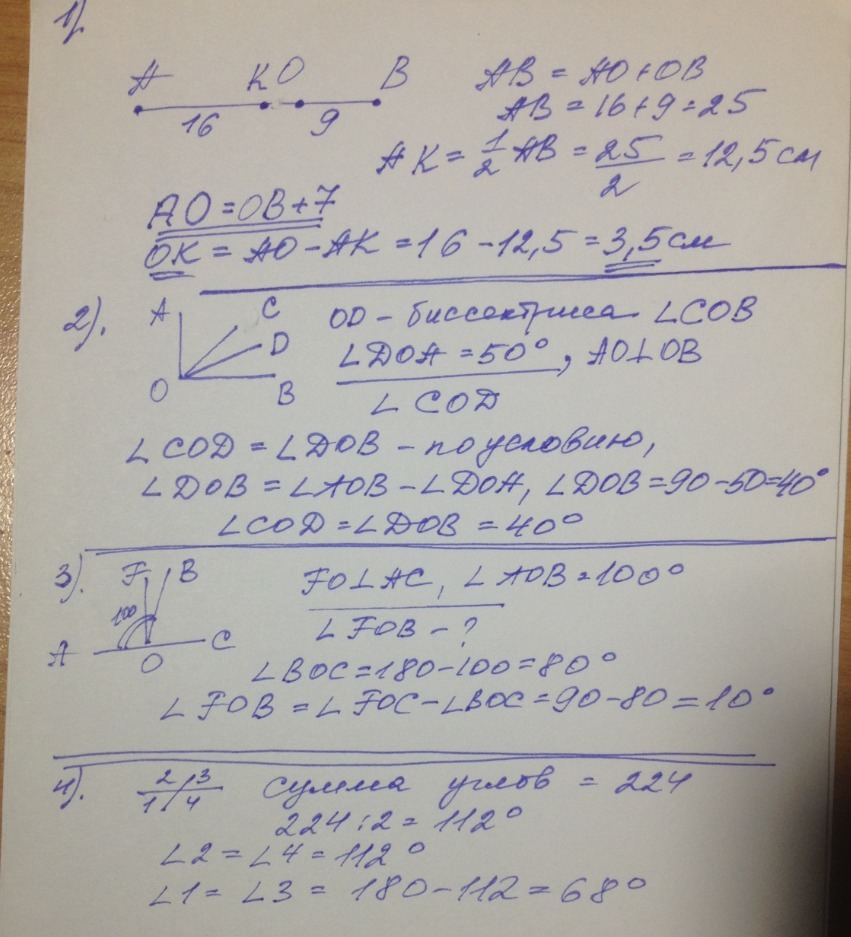 1)
A K O B
16 9
AB = AO+OB
AB = 16+9=25
AK = 1/2 AB = 25/2 = 12,5 см
AO=OB+7
OK = AO-AK =16-12,5 = 3,5 см
2).
A C D
O B
OD - биссектриса ∠COB
∠DOA = 50°, AO⊥OB
∠COD
∠COD = ∠DOB - по условию,
∠DOB = ∠AOB - ∠DOA, ∠DOB = 90-50=40°
∠COD = ∠DOB = 40°
3).
F B
100
A O C
FO⊥AC, ∠AOB=100°
∠FOB - ?
∠BOC=180-100=80°
∠FOB = ∠FOC-∠BOC=90-80=10°
4).
2 3
1 4
сумма углов = 224
224:2=112°
∠2=∠4=112°
∠1= ∠3 = 180-112=68°